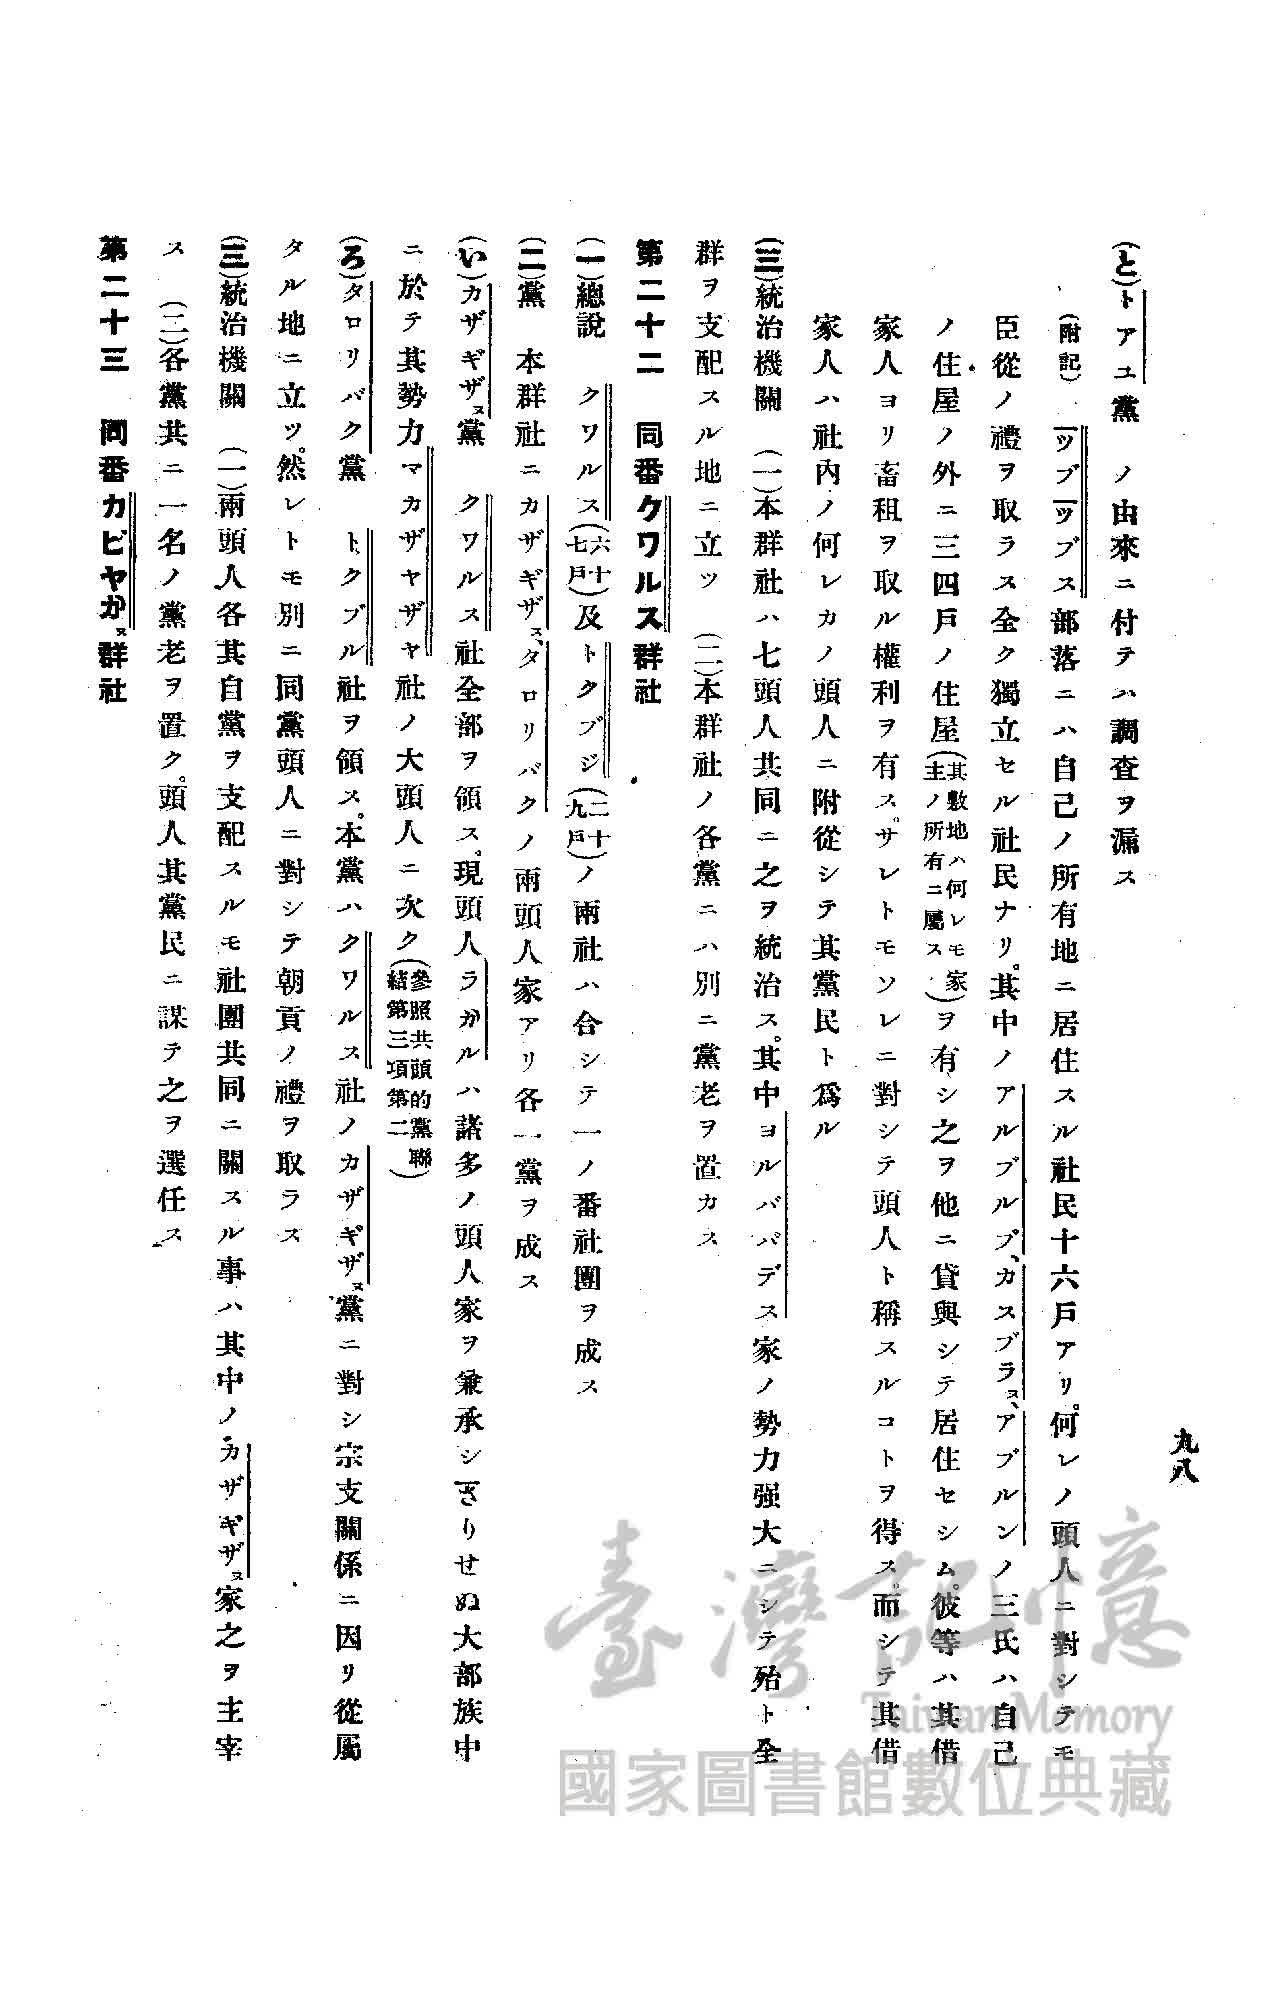 九八
(と)トアユ黨　ノ由來ニ付テハ調查ヲ漏ス
(附記)　ツブツブス部落ニハ自己ノ所有地ニ居住スル社民十六戶アリ。何レノ頭人ニ對シテモ
臣從ノ禮ヲ取ラス全ク獨立セル社民ナリ。其中ノアルブルブ、カスブラス、アブルンノ三氏ハ自己
ノ住屋ノ外ニ三四戶ノ住屋(其敷地ハ何レモ家主ノ所有ニ屬ス)ヲ有シ之ヲ他ニ貸與シテ居住セシム。彼等ハ其借
家人ヨリ畜租ヲ取ル權利ヲ有ス。サレトモソレニ對シテ頭人ト稱スルコトヲ得ス。而シテ其借
家人ハ社內ノ何レカノ頭人ニ附從シテ其黨民ト爲ル
(三)統治機關　(一)本群社ハ七頭人共同ニ之ヲ統治ス。其中ヨルババデス家ノ勢力强大ニシテ殆ト全
群ヲ支配スル地ニ立ツ　(二)本群社ノ各黨ニハ別ニ黨老ヲ置カス
第二十二　同番クワルス群社
(一)總說　クワルス(六十七戶)及トクブジ(二十九戶)ノ兩社ハ合シテ一ノ番社團ヲ成ス
(二)黨　本群社ニカザギザス、タロリバクノ兩頭人家アリ各一黨ヲ成ス
(い)カザギザス黨　クワルス社全部ヲ領ス。現頭人ラガルハ諸多ノ頭人家ヲ兼承シさりせぬ大部族中
ニ於テ其勢力マカザヤザヤ社ノ大頭人ニ次ク(參照共頭的黨聯結第三項第二)
(ろ)タロリバク黨　トクブル社ヲ領ス。本黨ハクワルス社ノカザギザス黨ニ對シ宗支關係ニ因リ從屬
タル地ニ立ツ。然レトモ別ニ同黨頭人ニ對シテ朝貢ノ禮ヲ取ラス
(三)統治機關　(一)兩頭人各其自黨ヲ支配スルモ社團共同ニ關スル事ハ其中ノカザギザス家之ヲ主宰
ス　(二)各黨共ニ一名ノ黨老ヲ置ク。頭人其黨民ニ謀テ之ヲ選任ス
第二十三　同番カビヤガス群社
臺灣記憶
Taiwan Memory
國家圖書館數位典藏